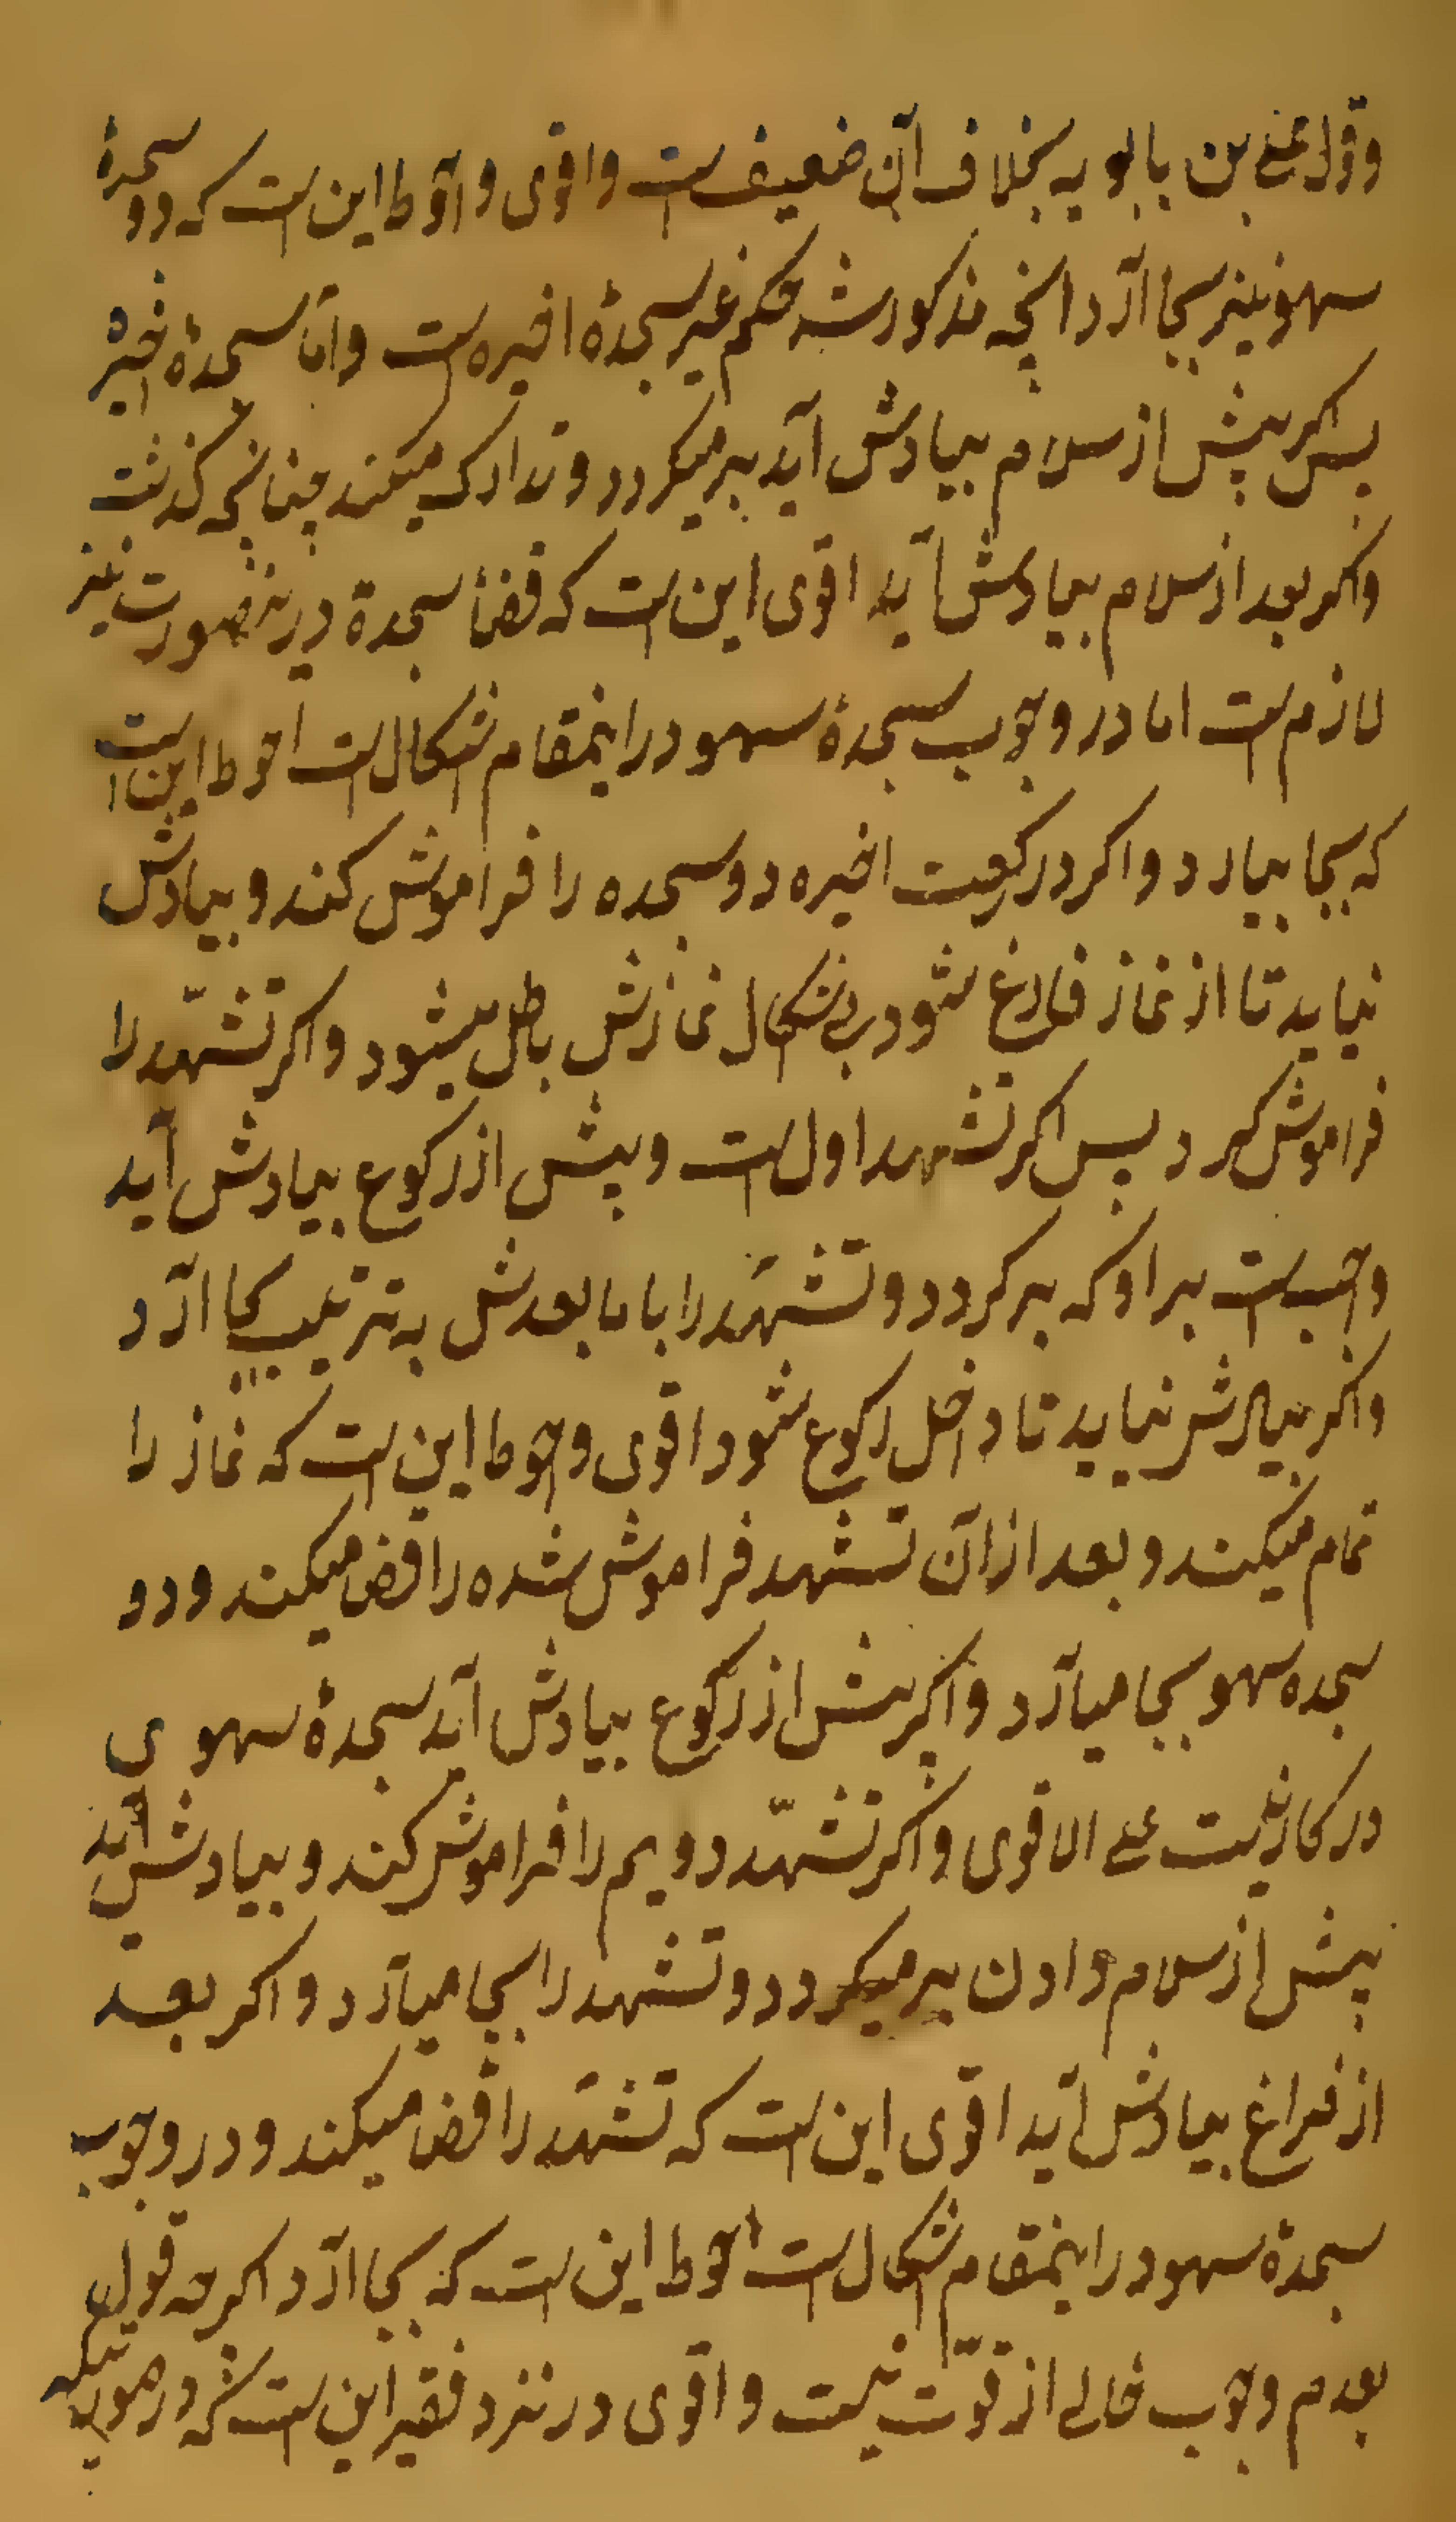 وقول علی بن بابویه بخلاف آن ضعیف است واقوی واحوط این است که دو سجدهٔ
سهو نیز بجا آرد آنچه مذکور شد حکم غیر سجدهٔ اخیره است واما سجدهٔ اخیره
پس اکر پیش از سلام بیادش آید برمیکردد و تدارک میکند چنانچه کذشت
واکر بعد از سلام بیادش آید اقوی این است که قضأ سجدة درینصورت نیز
لازم است اما در وجوب سجدهٔ سهو در اینمقام اشکال است احوط این است
که بجا بیارد و اکر در رکعت اخیره دو سجده را فراموش کند و بیادش
نیاید تا از نماز فارغ شود بی اشکال نمازش باطل میشود و اکر تشهّد را
فراموش کرد پس اکر تشهد اول است وپیش از رکوع بیادش آید
واجب است بر او که برکردد و تشهّد را با ما بعدش به ترتیب بجا آرد
واکر بیادش نیاید تا داخل رکوع شود اقوی واحوط این است که نماز را
تمام میکند و بعد از آن تشهد فراموش شده را قضا میکند و دو
سجده سهو بجا میآرد و اکر پیش از رکوع بیادش آید سجدهٔ سهوی
در کار نیست علی الاقوی واکر تشهّد دویم را فراموش کند و بیادش آید
پیش از سلام دادن برمیکردد و تشهد را بجا میآرد و اکر بعد
از فراغ بیادش آید اقوی این است که تشهّد را قضا میکند و در وجوب
سجدهٔ سهو در اینمقام اشکال است احوط این است که بجا آرد اکرچه قول
بعدم وجوب خالی از قوّت نیست و اقوی در نزد فقیر این است که در هر صورتیکه